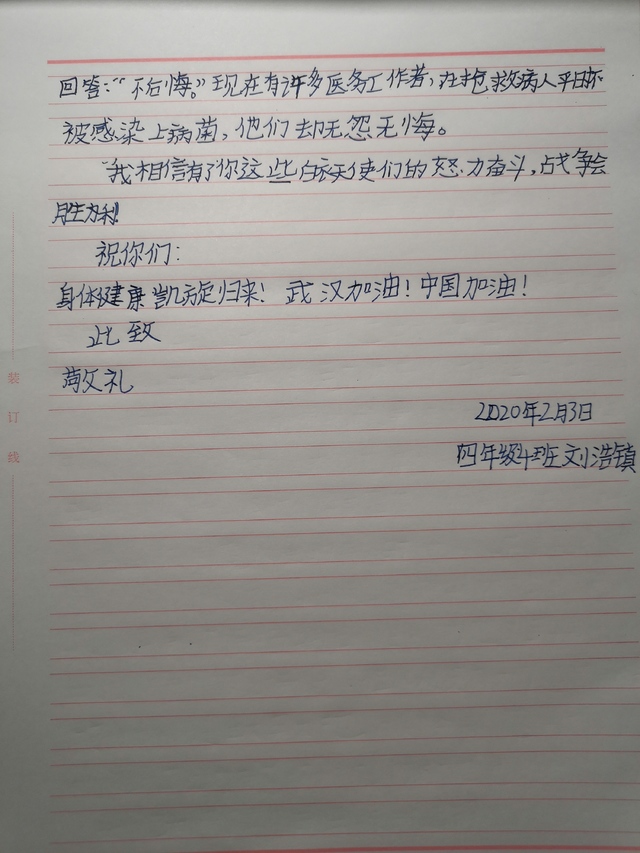 回答：“不后悔。”现在有许多医务工作者，在抢救病人平时不
被感染上病菌，他们却无怨无悔。
我相信有了你这些白衣天使们的努力奋斗，战争会
胜利!
祝你们：
身体健康 凯旋归来! 武汉加油! 中国加油!
此致
敬礼
2020年2月3日
四年级十班 刘浩镇
装
订
线